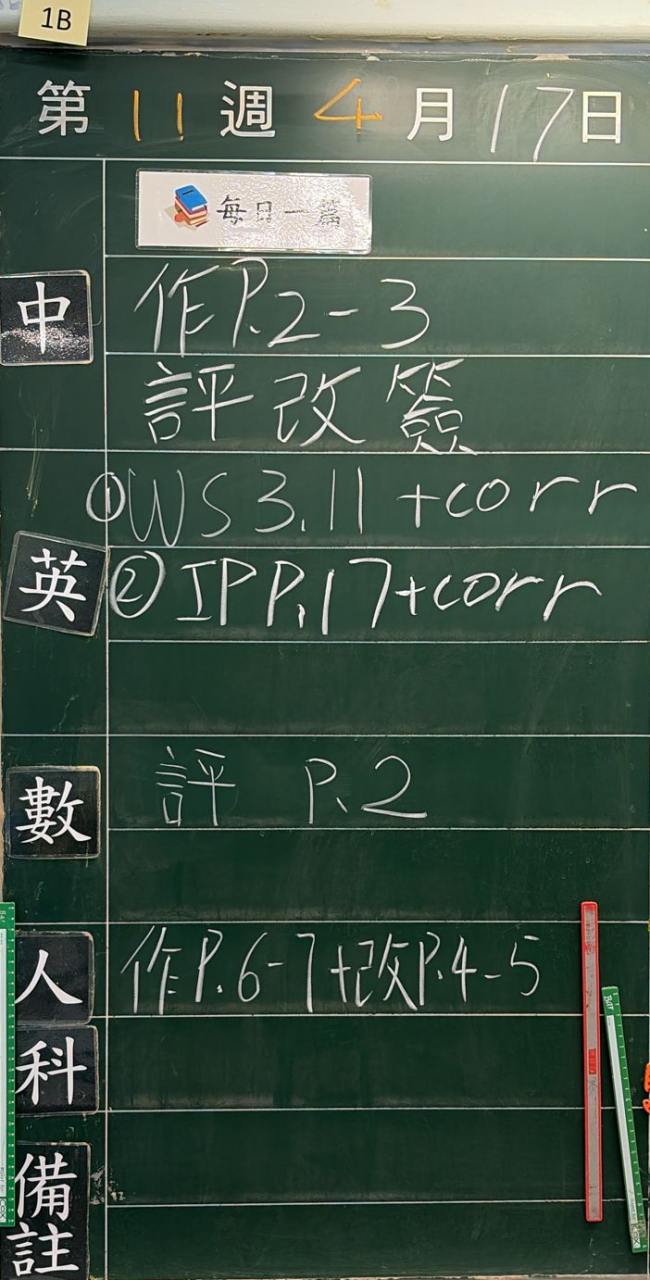 1B
第 11 週 4 月 17 日
每日一篇
中
作P.2-3
評改簽
①WS 3.11 +corr
英
②IP P.17+corr
數
評 P.2
人
作P.6-7+改P.4-5
科
備註